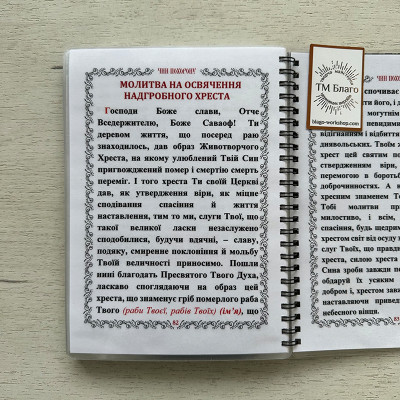 ЧИН ПОХОРОНУ
МОЛИТВА НА ОСВЯЧЕННЯ
НАДГРОБНОГО ХРЕСТА
Господи Боже слави, Отче
Вседержителю, Боже Саваоф! Ти
деревом життя, що посеред раю
знаходилось, дав образ Животворчого
Хреста, на якому улюблений Твій Син
пригвожджений помер і смертію смерть
переміг. І того хреста Ти своїй Церкві
дав, як утвердження віри, як міцне
сподівання спасіння й життя
наставлення, тим то ми, слуги Твої, що
такої великої ласки незаслужено
сподобилися, будучи вдячні, – славу,
подяку, смиренне поклоніння й мольбу
Твоїй величності приносимо. Пошли
нині благодать Пресвятого Твого Духа,
ласкаво споглядаючи на образ цей
хреста, що знаменує гріб померлого раба
Твого (раби Твоєї, рабів Твоїх) (ім'я), що
82
ЧИН ПОХ
спочиває
його, і д
могутнім
невидими
відігнанням і відбиття
диявольських. Твоїм ж
хрест цей святим по
ствердженням віри,
перемогою в бороть
доброчинностях. А н
хресним знаменем То
Тобі молитви пр
милостиво, і всім,
спасіння, будь щедрим
хрестом світ від осуду в
слуг Твоїх, що правдив
хреста, силою хреста
Сина зроби завжди пе
обдаруй їх усякими
добром і, хрестом зава
наставляючи приведи
небесного вівця.
83
ТМ Благо
blago-workshop.com